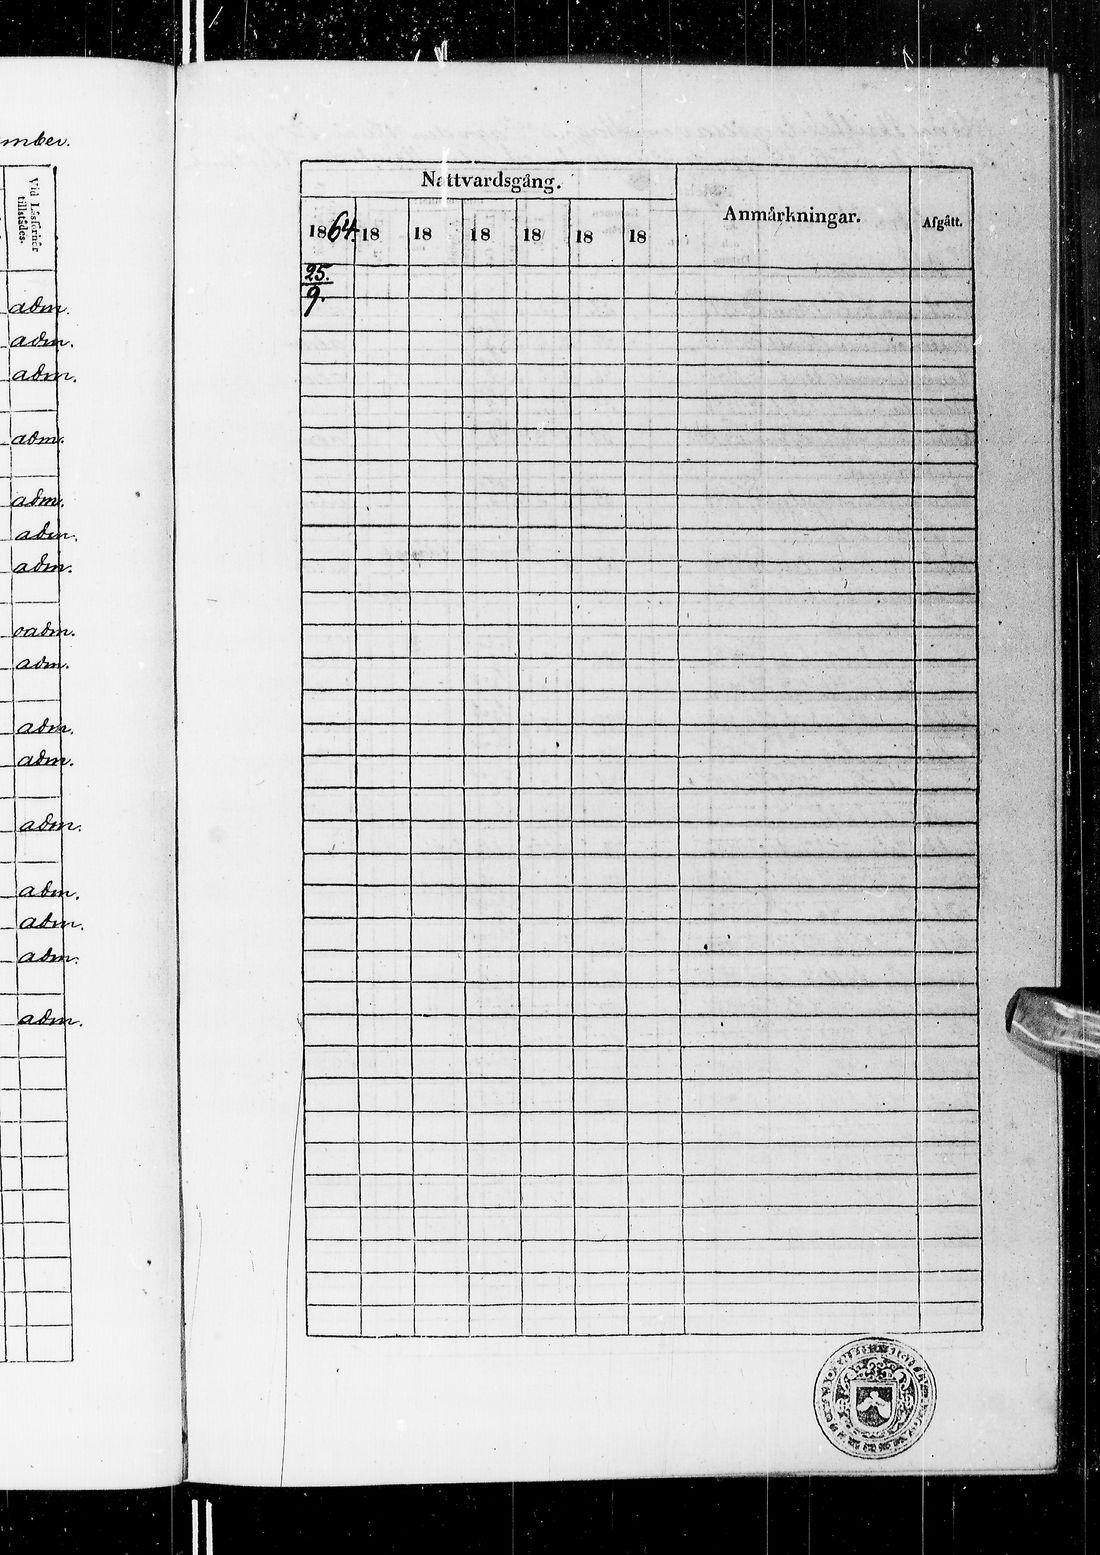 mber.
Vid Läsförhör tillstädes.
adm.
adm.
adm.
adm.
adm.
adm.
adm.
oadm.
adm.
adm.
adm.
adm.
adm.
adm.
adm.
adm.
Nattvardsgång.
Anmärkningar.
Afgått.
1864. 18 18 18 18 18 18
25.
9.